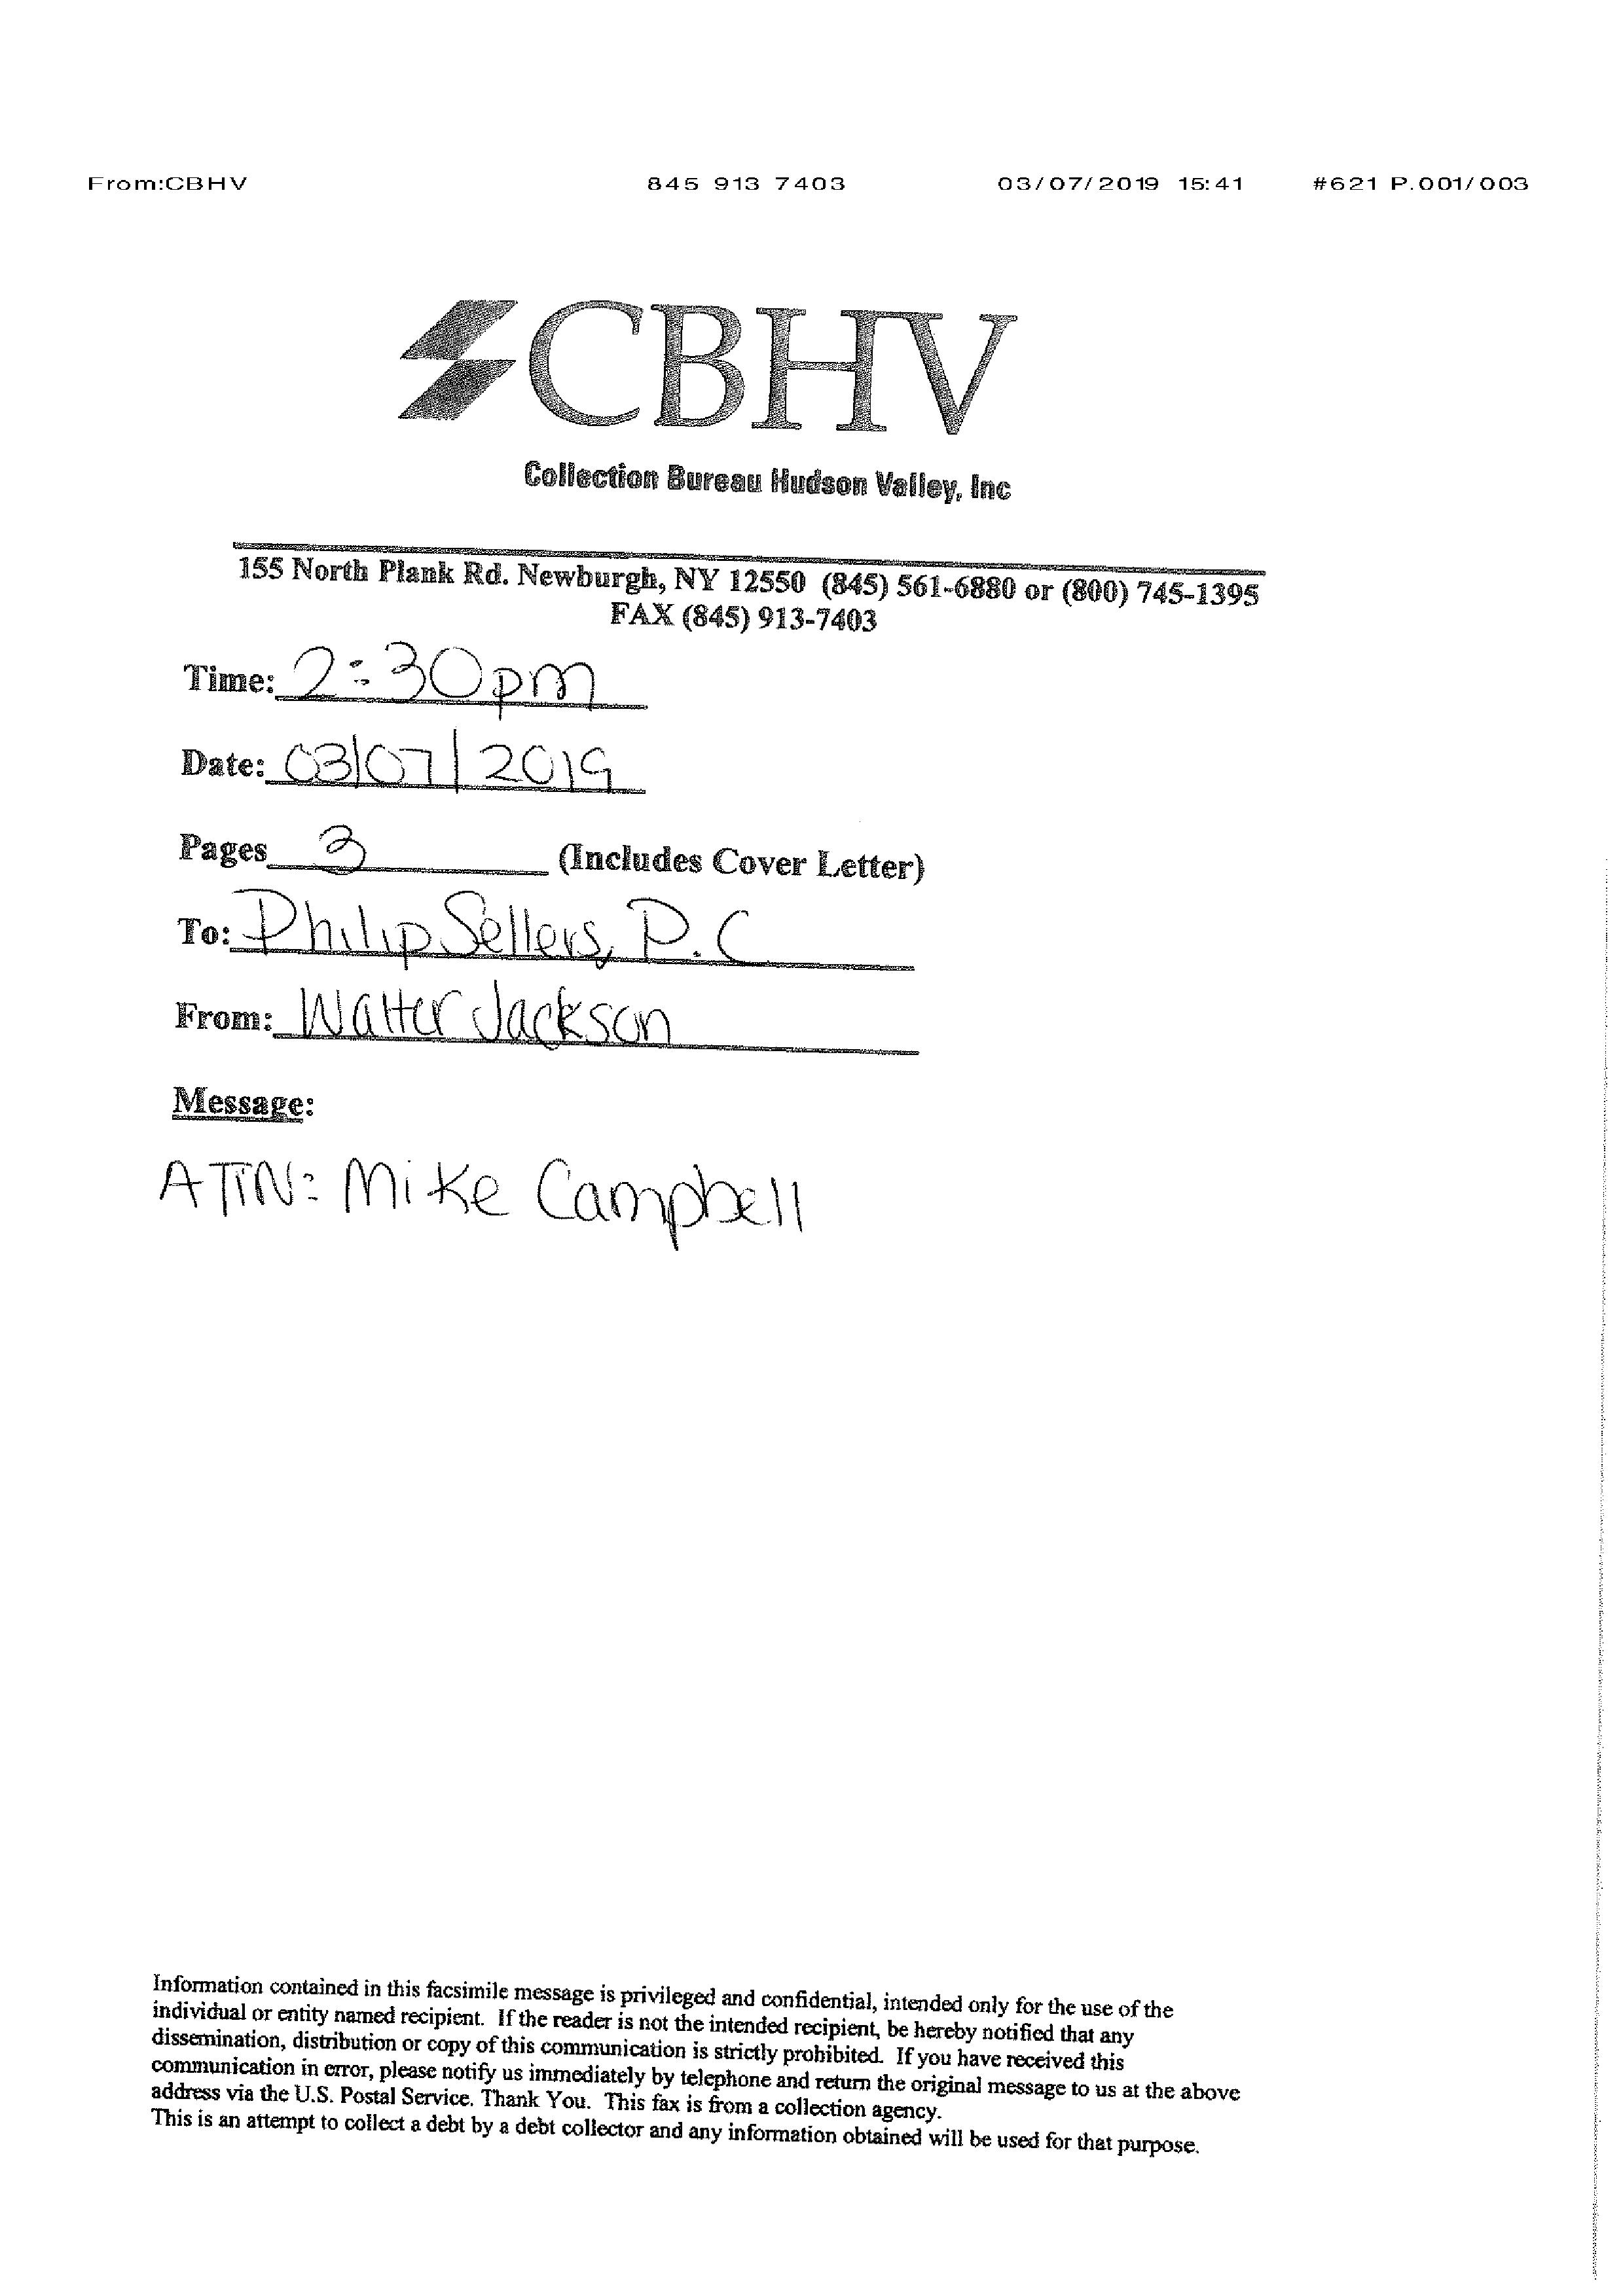 From:CBHV 845 913 7403 03/07/2019 15:41 #621 P.001/003
CBHV
Collection Bureau Hudson Valley, Inc
155 North Plank Rd. Newburgh, NY 12550 (845) 561-6880 or (800) 745-1395
FAX (845) 913-7403
Time: 2:30pm
Date: 03/07/2019
Pages 3 (Includes Cover Letter)
To: Philip Sellers, P.C
From: Walter Jackson
Message:
ATTN: Mike Campbell
Information contained in this facsimile message is privileged and confidential, intended only for the use of the
individual or entity named recipient. If the reader is not the intended recipient, be hereby notified that any
dissemination, distribution or copy of this communication is strictly prohibited. If you have received this
communication in error, please notify us immediately by telephone and return the original message to us at the above
address via the U.S. Postal Service. Thank You. This fax is from a collection agency.
This is an attempt to collect a debt by a debt collector and any information obtained will be used for that purpose.